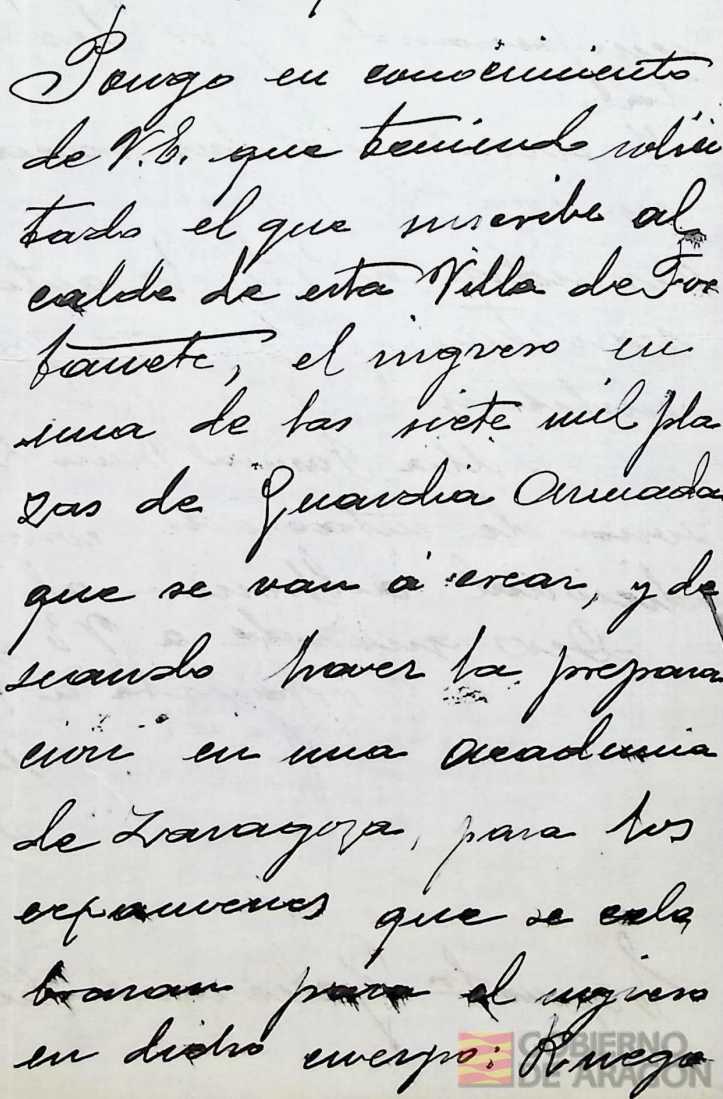 Pongo en conocimiento
de V.E. que teniendo solici
tado el que suscribe al
calde de esta Villa de For
tanete, el ingreso en
una de las siete mil pla
zas de Guardia Armada
que se van á crear, y de
seando hacer la prepara
cion en una academia
de Zaragoza, para los
expamenes que se cele
braran para el ingreso
en dicho cuerpo: Ruego
GOBIERNO
DE ARAGON